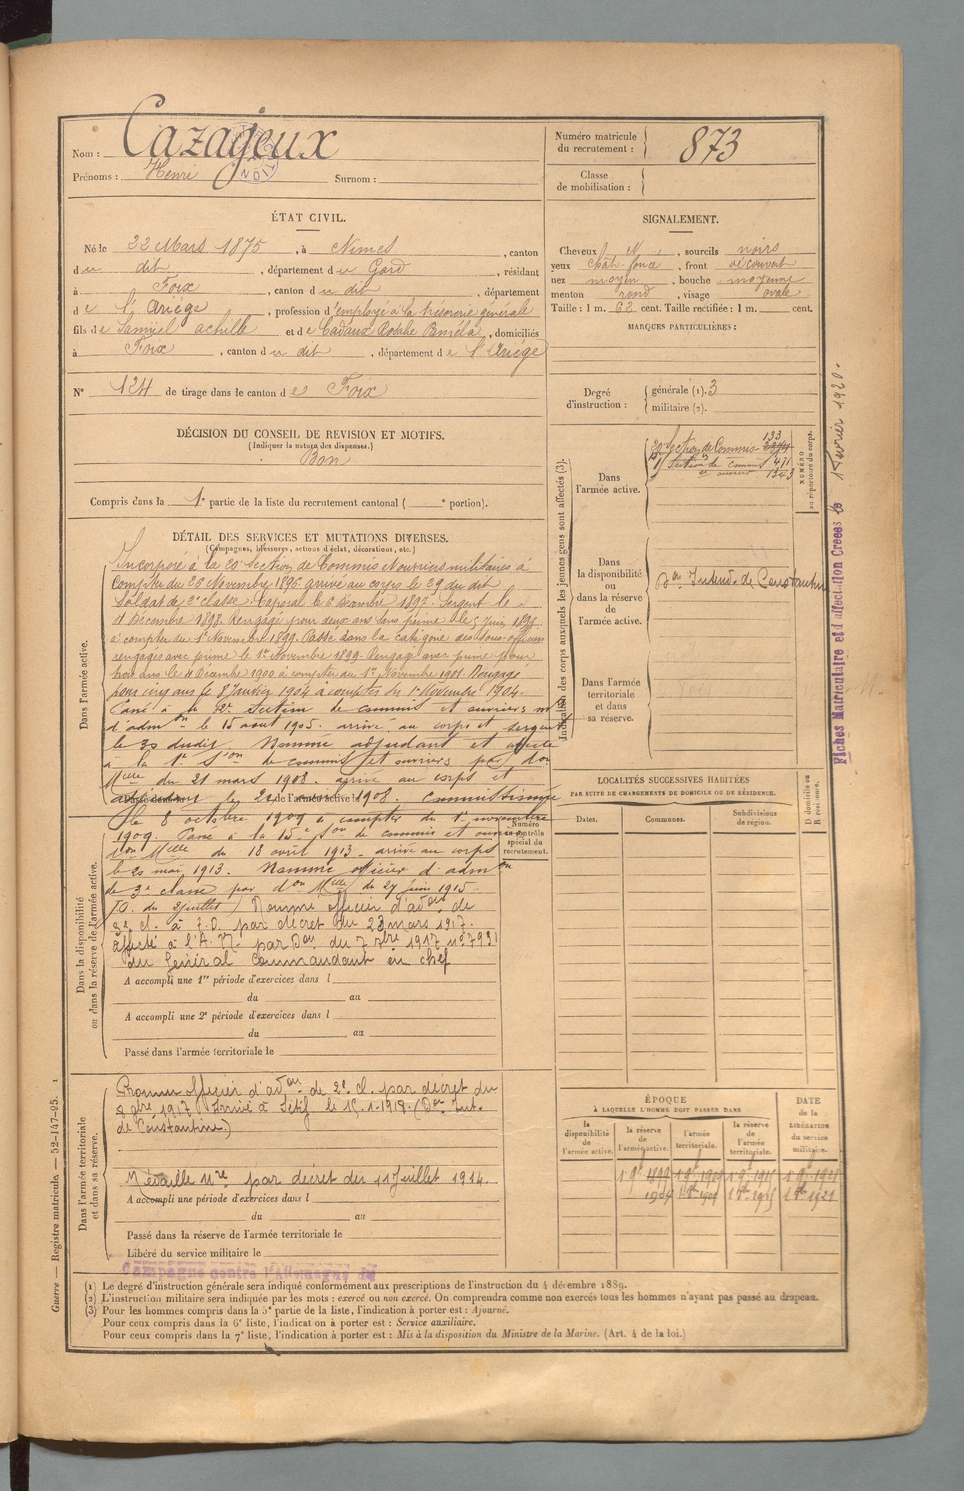 Nom : Cazajeux
Prénoms : Henri Surnom :
Numéro matricule du recrutement : 873
Classe de mobilisation :
ÉTAT CIVIL.
Né le 22 Mars 1875, à Nimes, canton
du dit, département du Gard, résidant
à Foix, canton du dit, département
de l'Ariège, profession d'employé à la trésorerie générale
fils de Samuel Achille et de Cadaux Rosalie Paméla, domiciliés
à Foix, canton du dit, département de l'Ariège
N° 124 de tirage dans le canton de Foix
SIGNALEMENT.
Cheveux N, sourcils noirs
yeux chât. foncé, front découvert
nez moyen, bouche moyenne
menton rond, visage ovale
Taille : 1 m. 62 cent. Taille rectifiée : 1 m. cent.
MARQUES PARTICULIÈRES :
Degré d'instruction : générale (1). 3
militaire (2).
DÉCISION DU CONSEIL DE REVISION ET MOTIFS.
(Indiquer la nature des dispenses.)
Bon
Compris dans la 1e partie de la liste du recrutement cantonal ( e portion).
DÉTAIL DES SERVICES ET MUTATIONS DIVERSES.
(Campagnes, blessures, actions d'éclat, décorations, etc.)
Dans l'armée active.
Incorporé à la 20e Section de Commis Ouvriers militaires à
Compter du 26 Novembre 1896 arrivé au corps le 29 du dit
Soldat de 2e classe. Caporal le 6 Décembre 1897. Sergent le
11 Décembre 1898. Rengagé pour deux ans sans prime le 5 Juin 1899
à compter du 1er Novembre 1899. Passé dans la catégorie des sous-officiers
rengagés avec prime le 1er Novembre 1899. Rengagé avec prime pour
trois ans le 11 Décembre 1900 à compter du 1er Novembre 1901. Rengagé
pour cinq ans le 8 Janvier 1904 à compter du 1er Novembre 1904.
Passé à la 2e Section de commis et ouvriers mres
d'admon le 15 août 1905. arrivé au corps et sergent
le 30 dudit. Nommé adjudant et affecté
à la 1e Son de commis et ouvriers par don
Melle du 21 mars 1908. arrivé au corps et
le 21 1908. Commissionné
le 8 octobre 1909 à compter du 1er novembre
1909. Passé à la 15e Son de commis et ouvriers
don Melle du 18 avril 1913. arrivé au corps
le 20 mai 1913. Nommé officier d'admon
de 3e classe par don Melle du 27 juin 1915
J.O. du 2 juillet) Nommé officier d'adon de
3e cl. à T.D. par décret du 23 mars 1917.
affecté à l'A. N. par Don du 7 7bre 1917 no 7931
du Général Commandant en chef
Dans la disponibilité ou dans la réserve de l'armée active.
Numéro au contrôle spécial du recrutement.
A accompli une 1re période d'exercices dans l
du au
A accompli une 2e période d'exercices dans l
du au
Passé dans l'armée territoriale le
Dans l'armée territoriale et dans sa réserve.
Promu officier d'adon de 2e cl. par décret du
8 9bre 1917 Arrivé à Sétif le 15.1.1918 (Don Int.
de Constantine)
Médaille Mre par décret du 11 Juillet 1914.
A accompli une période d'exercices dans l
du au
Passé dans la réserve de l'armée territoriale le
Libéré du service militaire le
Campagne contre l'Allemagne du
Indication des corps auxquels les jeunes gens sont affectés (3).
NUMÉRO au répertoire du corps.
Dans l'armée active.
20e Section de Commis 133
Section de commis 471
1343
Dans la disponibilité ou dans la réserve de l'armée active.
Don Intend. de Constantine
Dans l'armée territoriale et dans sa réserve.
LOCALITÉS SUCCESSIVES HABITÉES
PAR SUITE DE CHANGEMENTS DE DOMICILE OU DE RÉSIDENCE.
Dates. Communes. Subdivisions de région. D domicile ou R résidence.
ÉPOQUE
À LAQUELLE L'HOMME DOIT PASSER DANS
la disponibilité de l'armée active. la réserve de l'armée active. l'armée territoriale. la réserve de l'armée territoriale. DATE de la LIBÉRATION du service militaire.
Fiches Matriculaire et d'affectation Créées le 1 Février 1920.
Guerre — Registre matricule. — 52-147-95. 1
(1) Le degré d'instruction générale sera indiqué conformément aux prescriptions de l'instruction du 4 décembre 1889.
(2) L'instruction militaire sera indiquée par les mots : exercé ou non exercé. On comprendra comme non exercés tous les hommes n'ayant pas passé au drapeau.
(3) Pour les hommes compris dans la 5e partie de la liste, l'indication à porter est : Ajourné.
Pour ceux compris dans la 6e liste, l'indication à porter est : Service auxiliaire.
Pour ceux compris dans la 7e liste, l'indication à porter est : Mis à la disposition du Ministre de la Marine. (Art. 4 de la loi.)